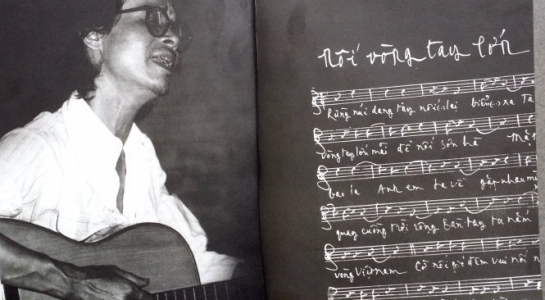 nối vòng tay lớn
Rừng núi dang tay nối lại biển xa Ta
vòng tay lớn mãi để nối sơn hà
bao la Anh em ta về gặp nhau
quay cuồng trời rộng Bàn tay ta nắm
vòng Việt Nam Cờ nối gió đêm vui nối